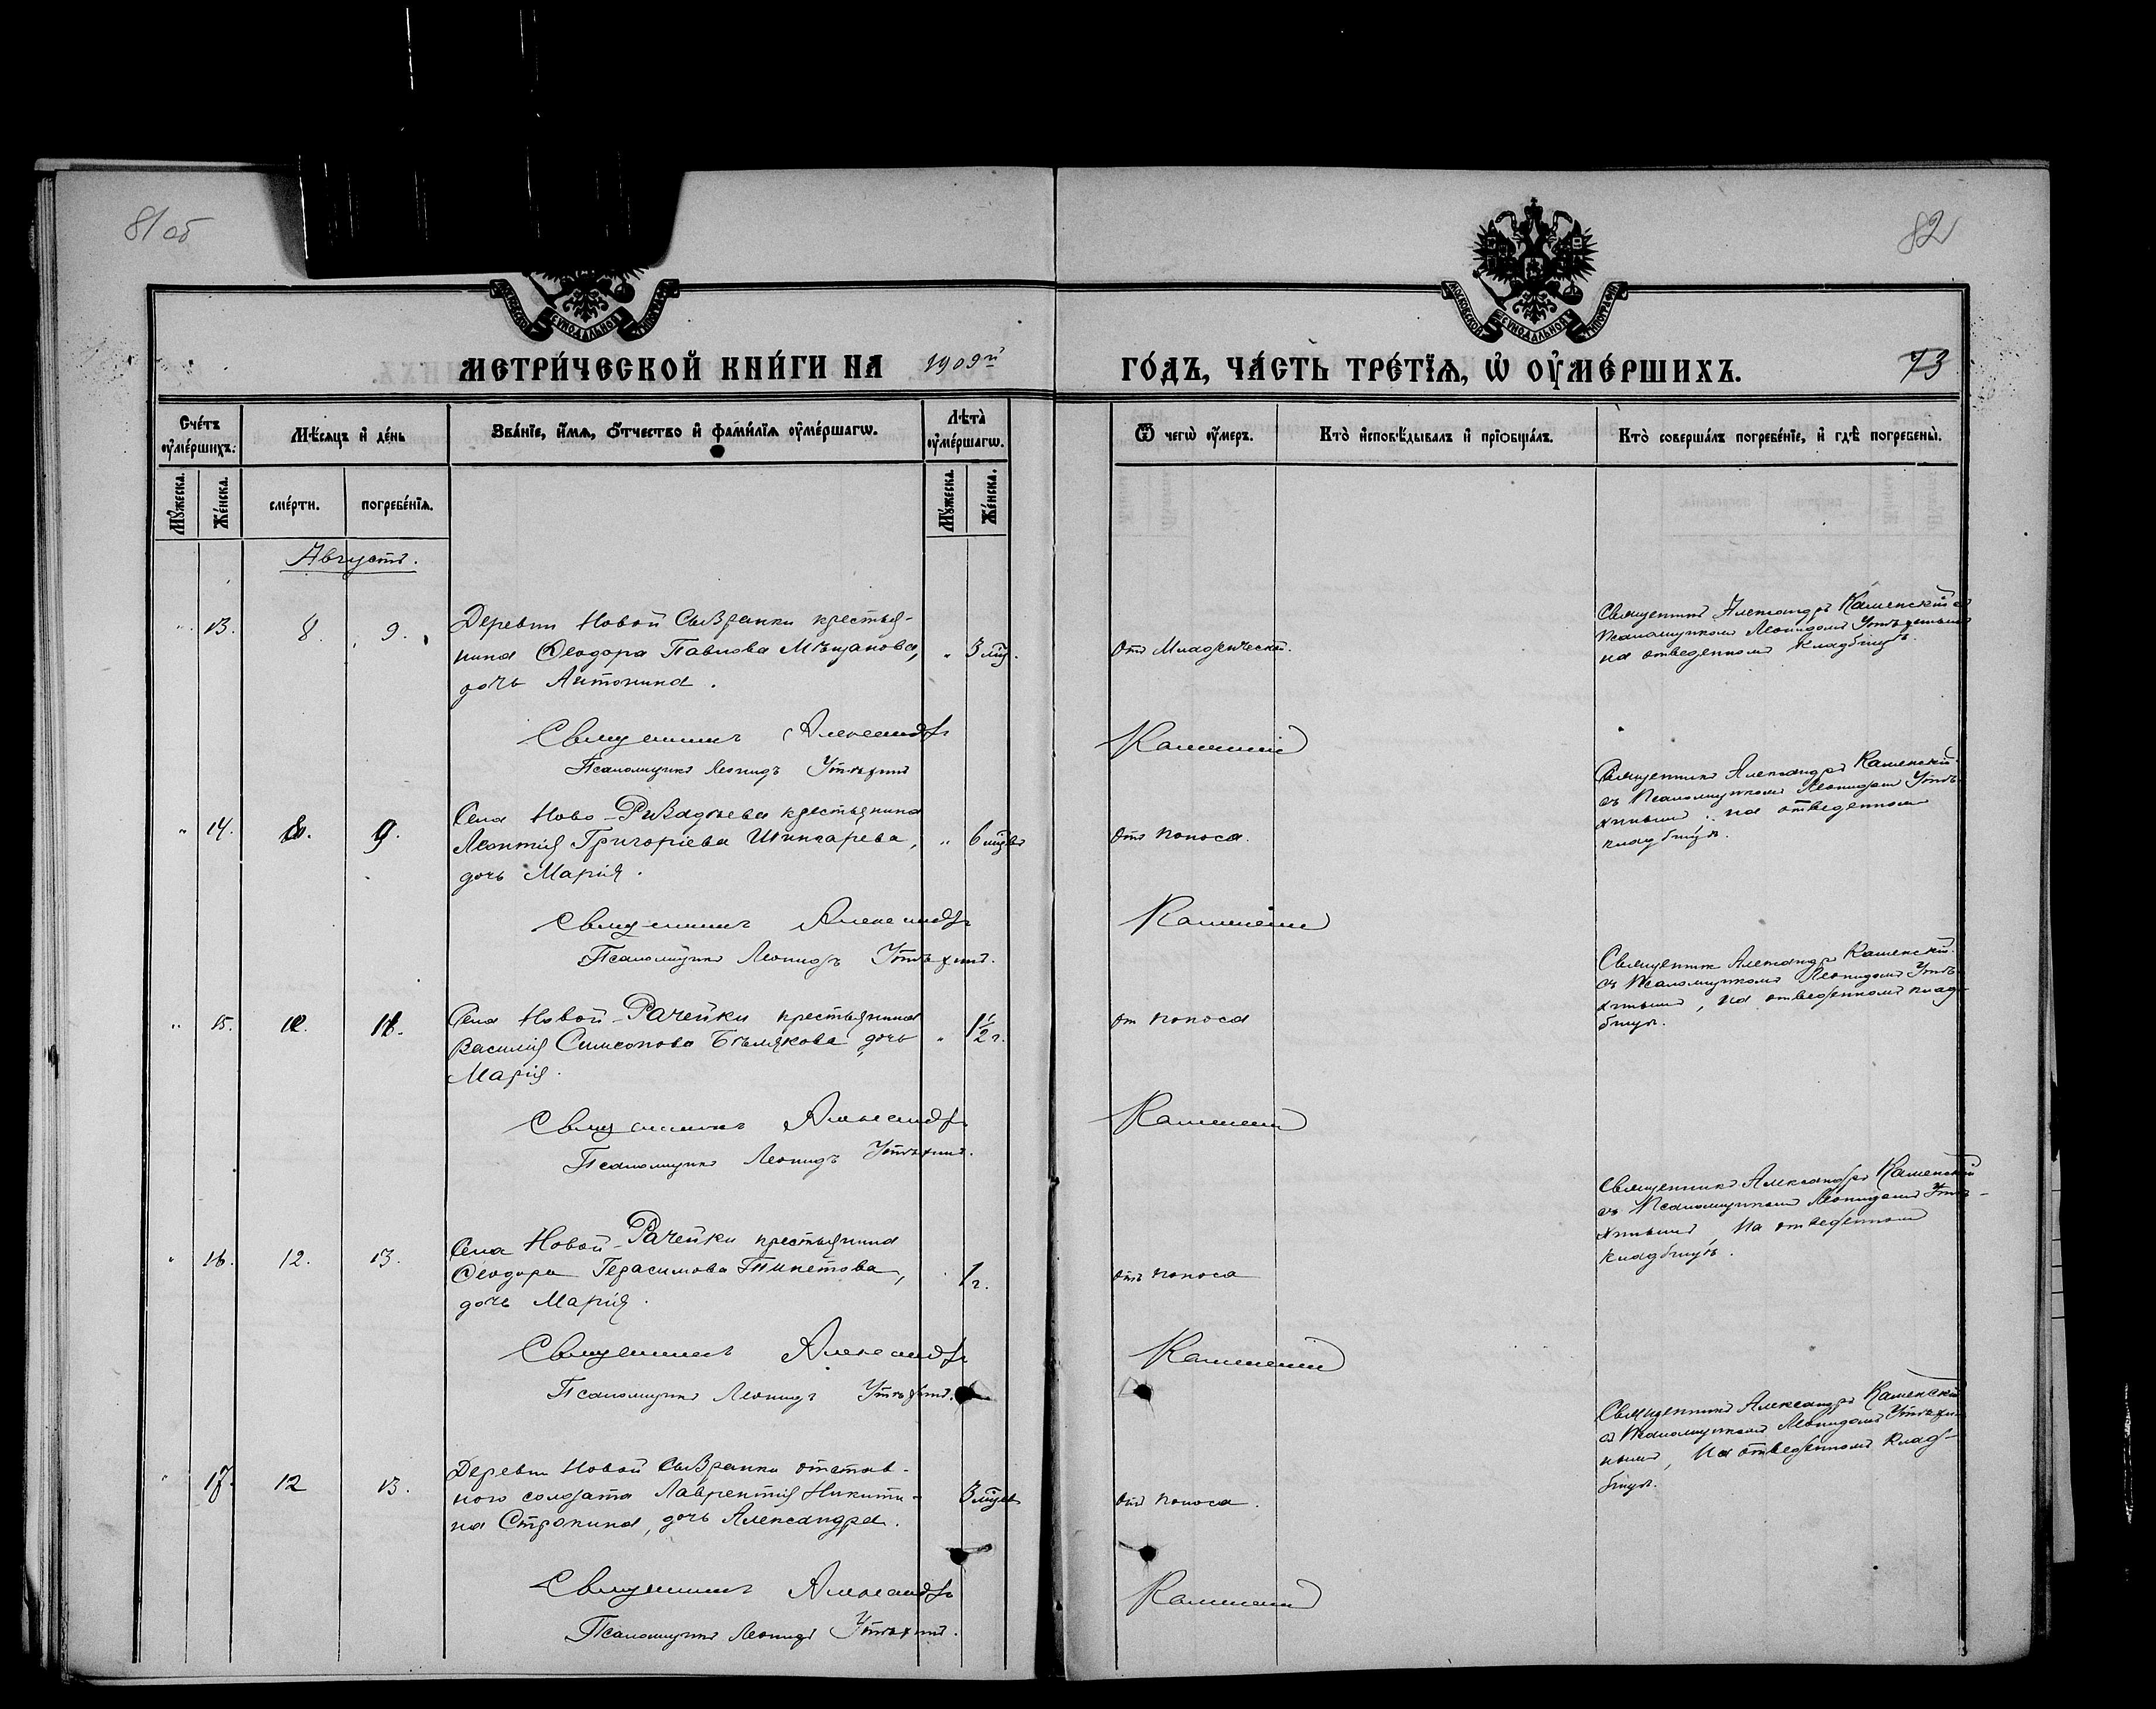 81 об
82
МОСКОВСКОЙ СѴНОДАЛЬНОЙ ТИПОГРАФІИ
МЕТРИ́ЧЕСКОЙ КНИ́ГИ НА 1909й ГО́ДЪ, ЧА́СТЬ ТРЕ́ТІѦ, Ѡ҆ ОУ҆МЕ́РШИХЪ.
73
Сче́тъ оу҆ме́ршихъ:
Мѣ́сѧцъ и҆ де́нь
Зва́нїе, и҆́мѧ, ѻ҆́тчество и҆ фами́лїѧ оу҆ме́ршагѡ.
Лѣ̑та̀ оу҆ме́ршагѡ.
Ѿ чегѡ̀ оу҆́меръ.
Кто̀ и҆сповѣ́дывалъ и҆ прїѡбща́лъ.
Кто̀ соверша́лъ погребе́нїе, и҆ гдѣ̀ погребены̀.
Мꙋ́жеска.
Же́нска.
сме́рти.
погребе́нїѧ.
Мꙋ́жеска.
Же́нска.
Августъ.
" 13. 8. 9. Деревни Новой Сызранки крестья-
нина Ѳеодора Павлова Мѣщанова, " 3 мц.
дочь Антонина.
Отъ Младенческой.
Священникъ Александръ Каменскій съ
псаломщикомъ Леонидомъ Утѣхинымъ
на отведенномъ кладбищѣ.
Священникъ Александръ Каменскій
Псаломщикъ Леонидъ Утѣхинъ
" 14. 8. 9. Села Ново-Рязадьева крестьянина
Леонтія Григоріева Шинкарева, " 6 мцвъ
дочь Марія.
Отъ поноса.
Священникъ Александръ Каменскій
съ псаломщикомъ Леонидомъ Утѣ-
хинымъ, на отведенномъ
кладбищѣ.
Священникъ Александръ Каменскій
Псаломщикъ Леонидъ Утѣхинъ.
" 15. 10. 11. Села Новой-Рачейки крестьянина
Василія Симеонова Бѣлякова дочь " 1½ г.
Марія.
От поноса
Священник Александръ Каменскій
съ псаломщикомъ Леонидомъ Утѣ-
хинымъ, на отведенномъ клад-
бищѣ.
Священникъ Александръ Каменскій
Псаломщикъ Леонидъ Утѣхинъ.
" 16. 12. 13. Села Новой-Рачейки крестьянина
Ѳеодора Герасимова 1 г.
дочь Марія.
Отъ поноса
Священникъ Александръ Каменскій
съ псаломщикомъ Леонидомъ Утѣ-
хинымъ, на отведенномъ
кладбищѣ.
Священникъ Александръ Каменскій
Псаломщикъ Леонидъ Утѣхинъ.
" 17. 12 13. Деревни Новой Сызранки отстав-
ного солдата Лаврентія Никити- 3 мцевъ
на Строкина, дочь Александра.
Отъ поноса.
Священникъ Александръ Каменскій
съ псаломщикомъ Леонидомъ Утѣхи-
нымъ, на отведенномъ клад-
бищѣ.
Священникъ Александръ Каменскій
Псаломщикъ Леонидъ Утѣхинъ.